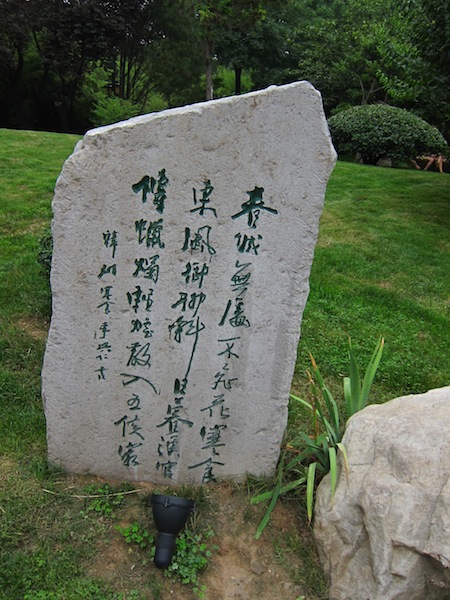 春城無處不飛花寒食
東風御柳斜日暮漢宮
傳蠟燭輕煙散入五侯家
韓翃寒食